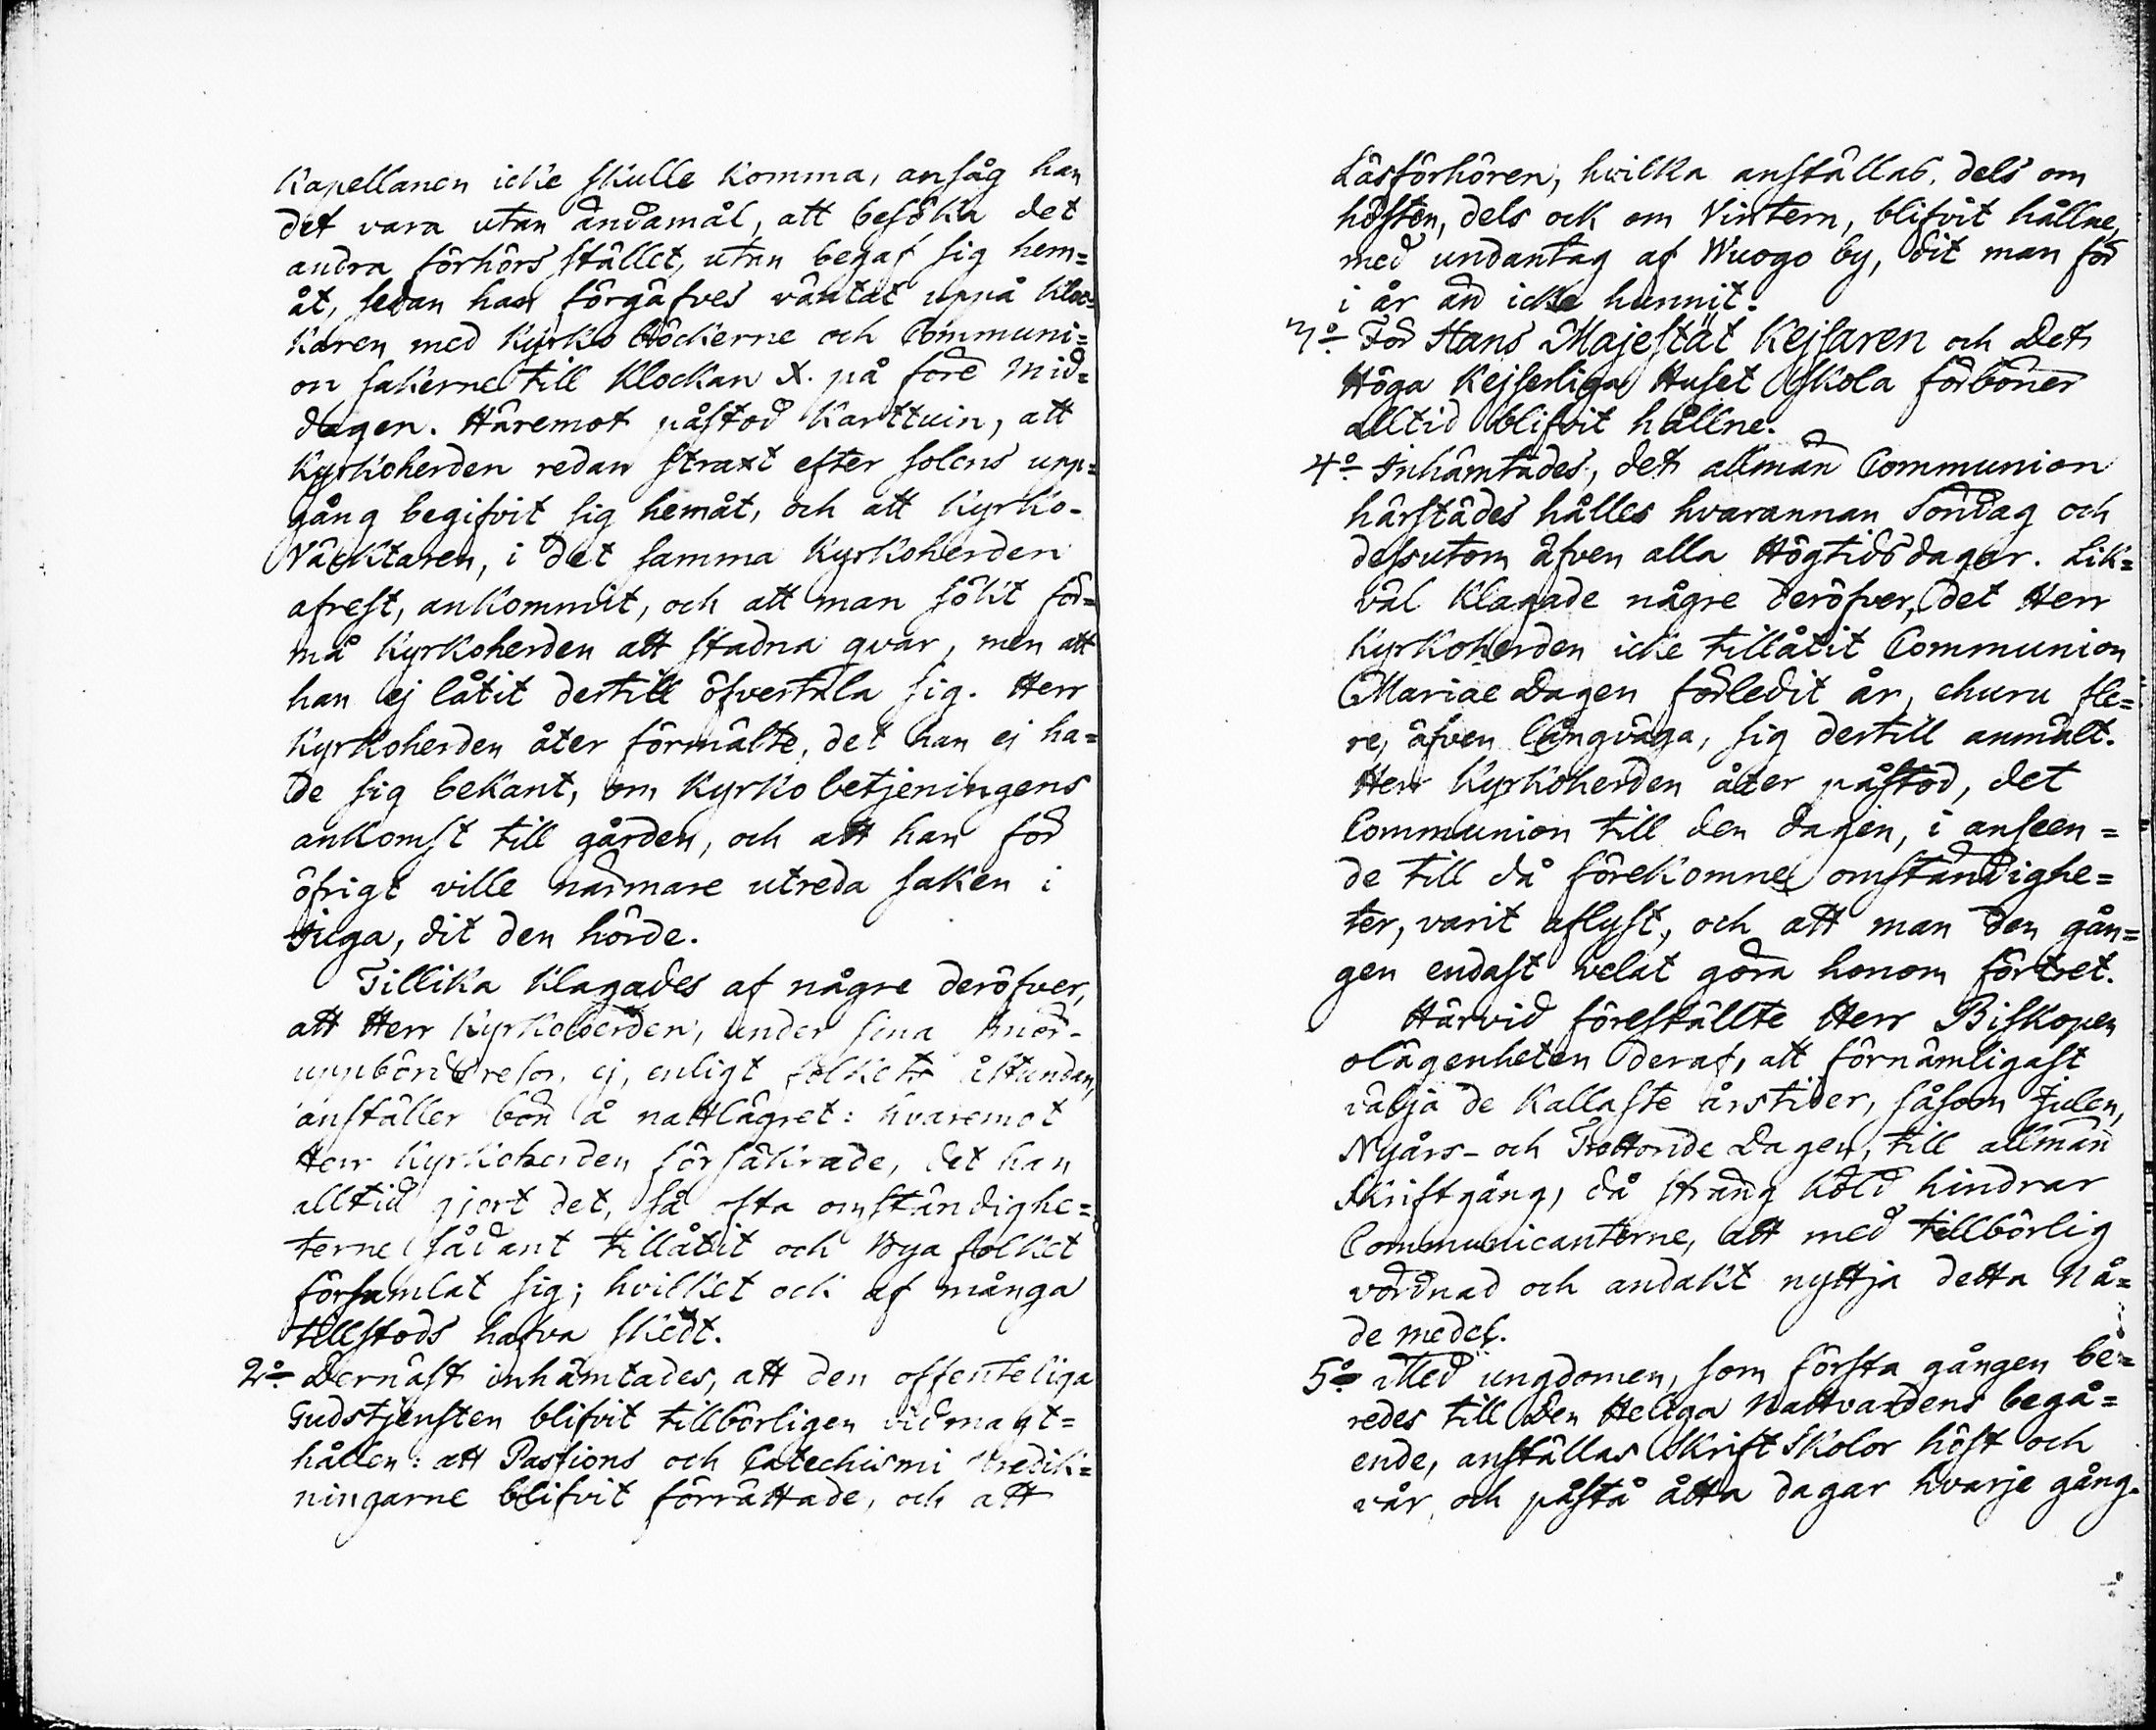 Kapellanen icke skulle komma, ansåg han
det vara utan ändamål, att besöka det
andra förhörs stället, utan begaf sig hem=
åt, sedan han förgäfves väntat uppå Kloc=
karen med Kyrko böckerne och Communi=
on sakerne till Klockan X. på före mid=
dagen. Häremot påstod Karttuin, att
Kyrkoherden redan straxt efter solens upp=
gång begifvit sig hemåt, och att Kyrko-
Väcktaren, i det samma Kyrkoherden
afrest, ankommit, och att man sökt för=
må Kyrkoherden att stadna qvar, men att
han ej låtit dertill öfvertala sig. Herr
Kyrkoherden åter förmälte, det han ej ha=
de sig bekant, om Kyrko betjeningens
ankomst till gården, och att han för
öfrigt ville närmare utreda saken i
Juga, dit den hörde.
Tillika klagades af någre deröfver,
att Herr Kyrkoherden, under sina Smör-
uppbörds resor, ej, enligt folkets åstundan,
anställer bön å nattlägret: hvaremot
Herr Kyrkoherden försäkrade, det han
alltid gjort det, så ofta omständighe=
terne sådant tillåtit och Bya folket
församlat sig; hvilket ock af många
tillstods hafva skedt.
2:o Dernäst inhämtades, att den offenteliga
Gudstjensten blifvit tillbörligen vidmagt=
hållen: att Passions och Catechismi Predik=
ningarne blifvit förrättade, och att
Läsförhören, hvilka anställas, dels om
hösten, dels ock om Vintern, blifvit hållne,
med undantag af Wuogo by, dit man för
i år än icke hunnit.
3:o För Hans Majestät Kejsaren och Det
Höga Kejserliga Huset skola förböner
alltid blifvit hållne.
4:o Inhämtades, det allmän Communion
härstädes hålles hvarannan Söndag och
dessutom äfven alla Högtids dagar. Lik=
väl klagade någre deröfver, det Herr
Kyrkoherden icke tillåtit Communion
Mariae Dagen förledit år, ehuru fle=
re, äfven långväga, sig dertill anmält.
Herr Kyrkoherden åter påstod, det
Communion till den dagen, i anseen=
de till då förekomne omständighe=
ter, varit aflyst, och att man den gån=
gen endast velat göra honom förtret.
Härvid föreställte Herr Biskopen
olägenheten deraf, att förnämligast
välja de kallaste årstider, såsom Julen,
Nyårs- och Trettonde Dagen, till allmän
Skriftgång, då sträng köld hindrar
Communicanterne, att med tillbörlig
vördnad och andakt nyttja detta Nå=
de medel.
5:o Med ungdomen, som första gången be=
redes till Den Heliga Nattvardens begå=
ende, anställas Skrift Skolor höst och
vår, och påstå åtta dagar hvarje gång.